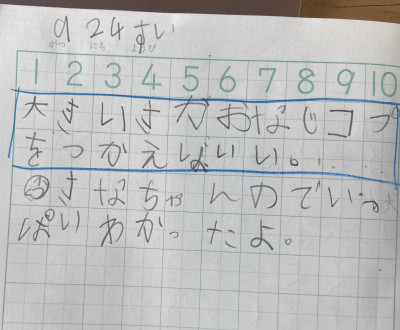 9がつ 24にち すいようび
1 2 3 4 5 6 7 8 9 10
大きいさがおなじコップ
をつかえばいい。
ゆきなちゃんのでいっ
ぱいわかったよ。